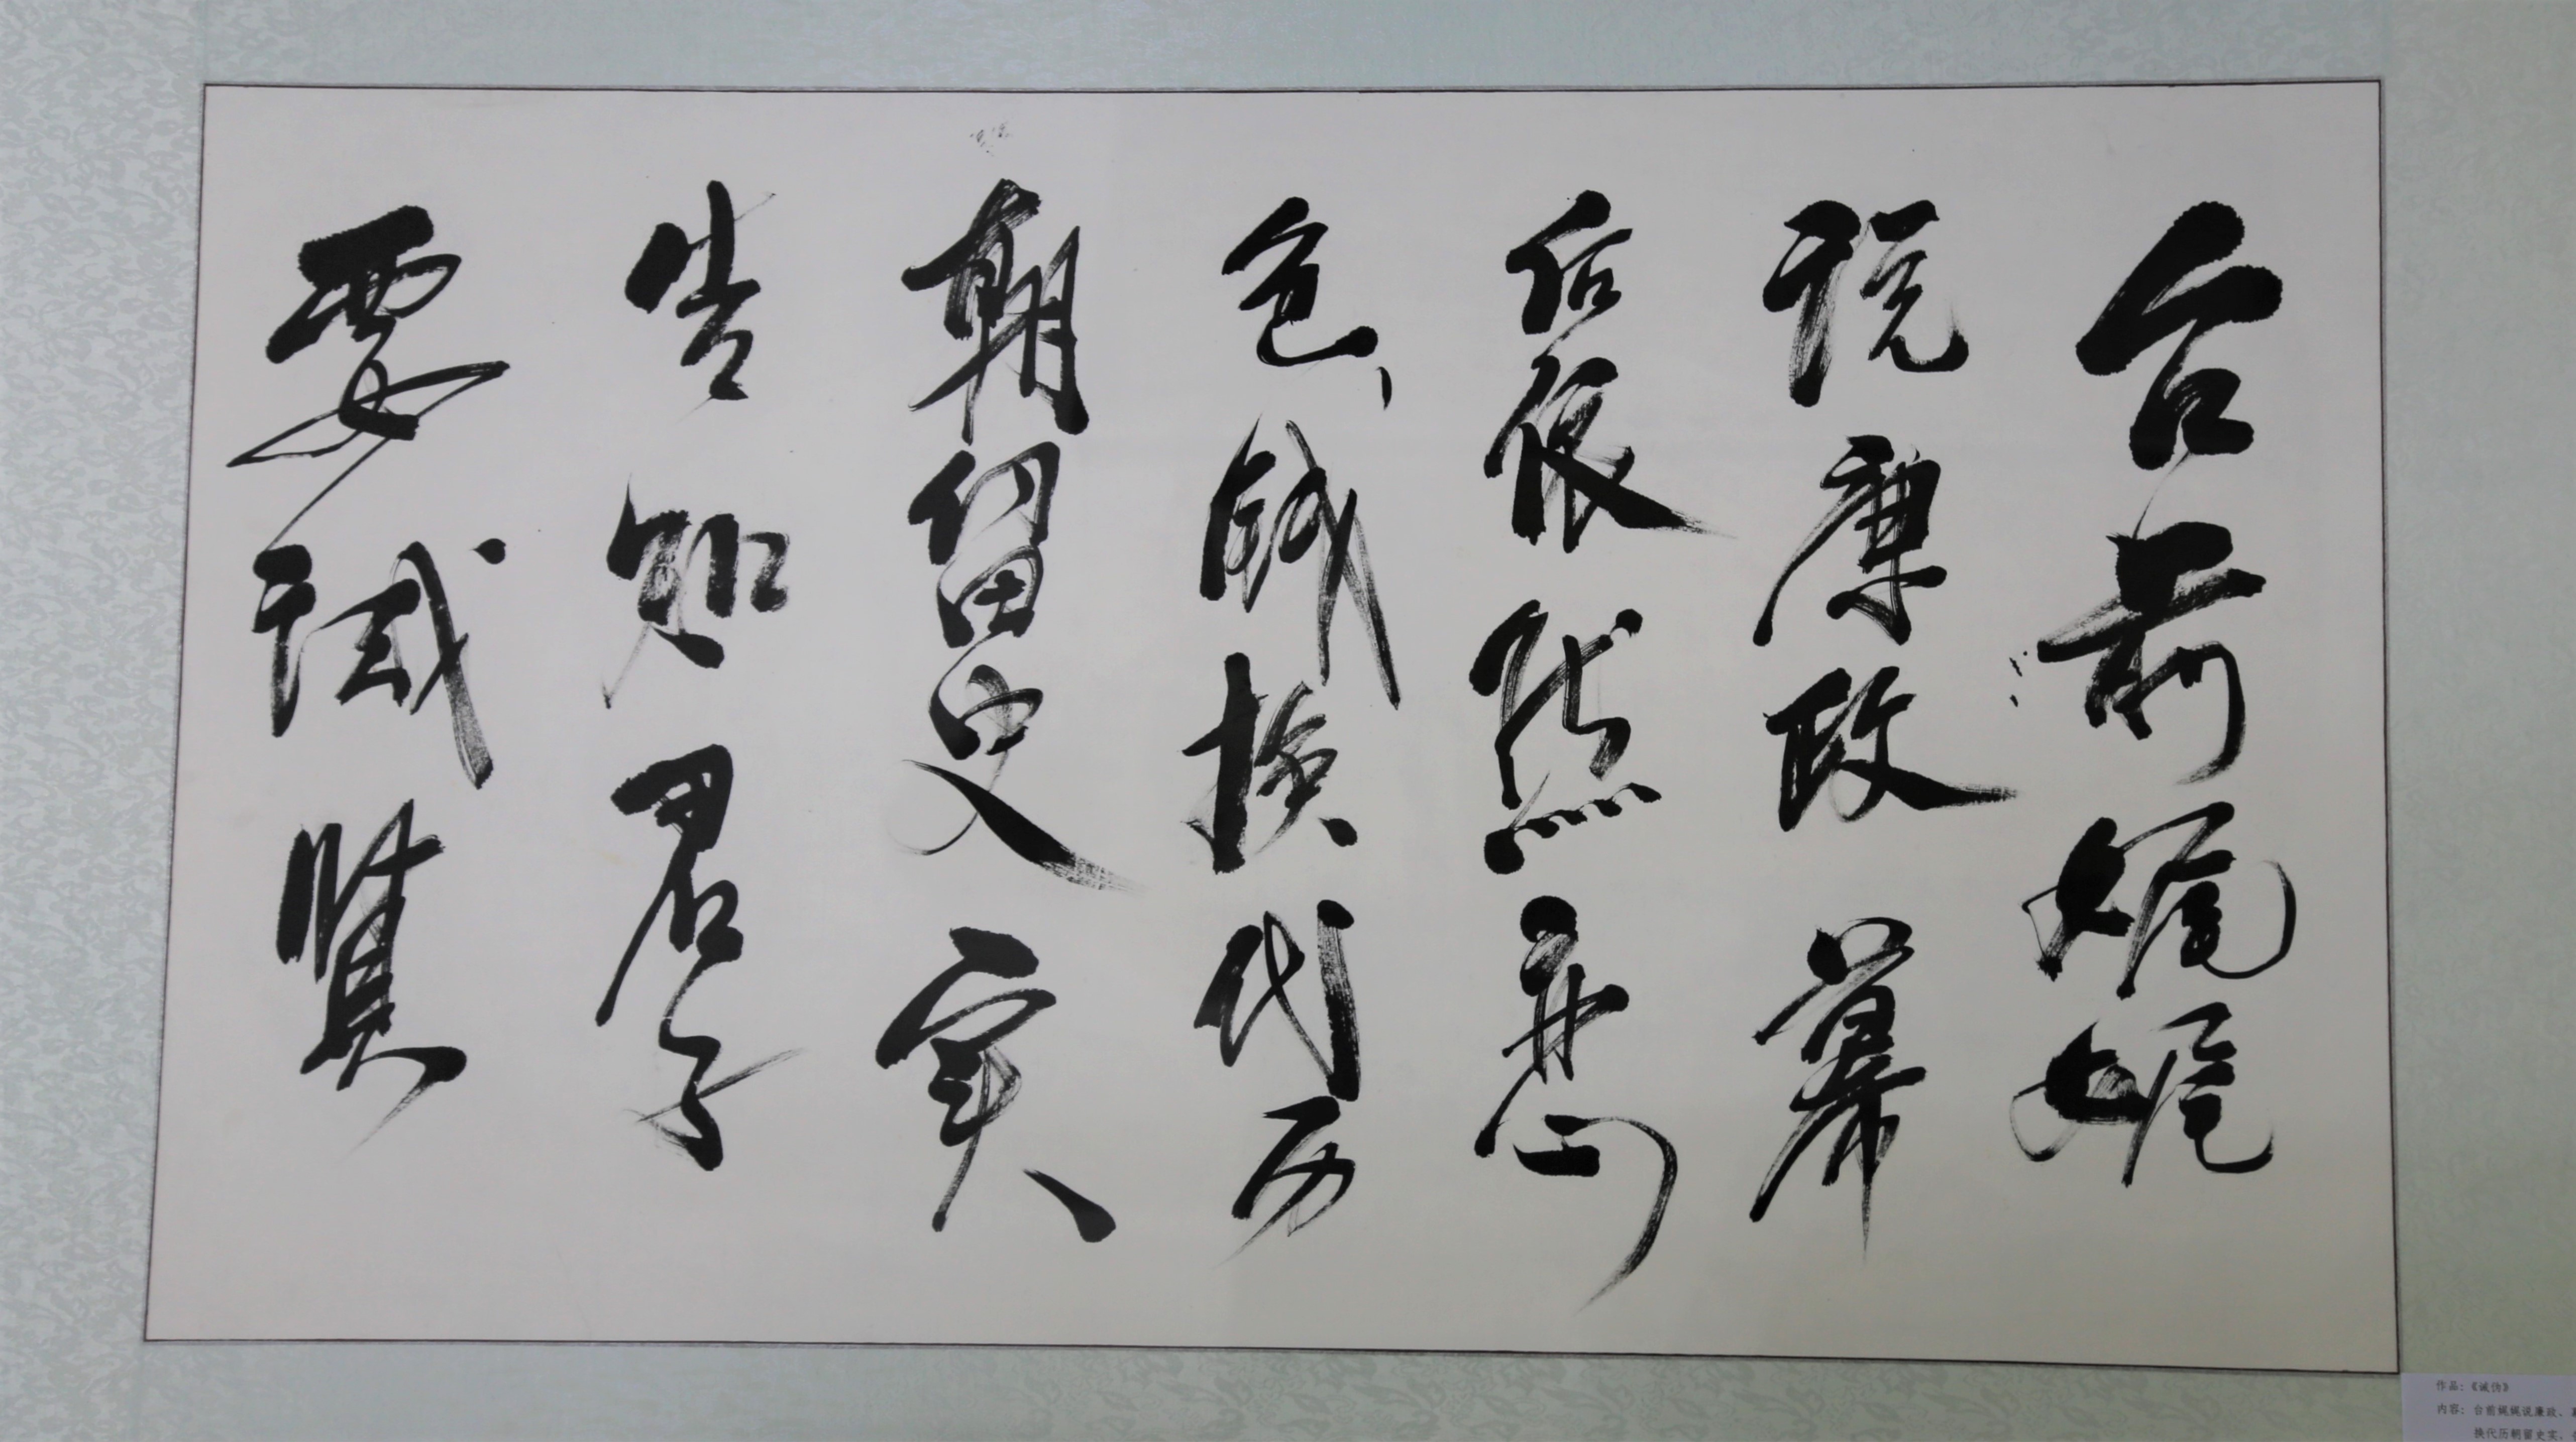 台前娓娓
说廉政幕
后依然恋
色钱换代历
朝留史实
告知君子
要識賢
作品：《诫伪》
内容：台前娓娓说廉政、
换代历朝留史实、